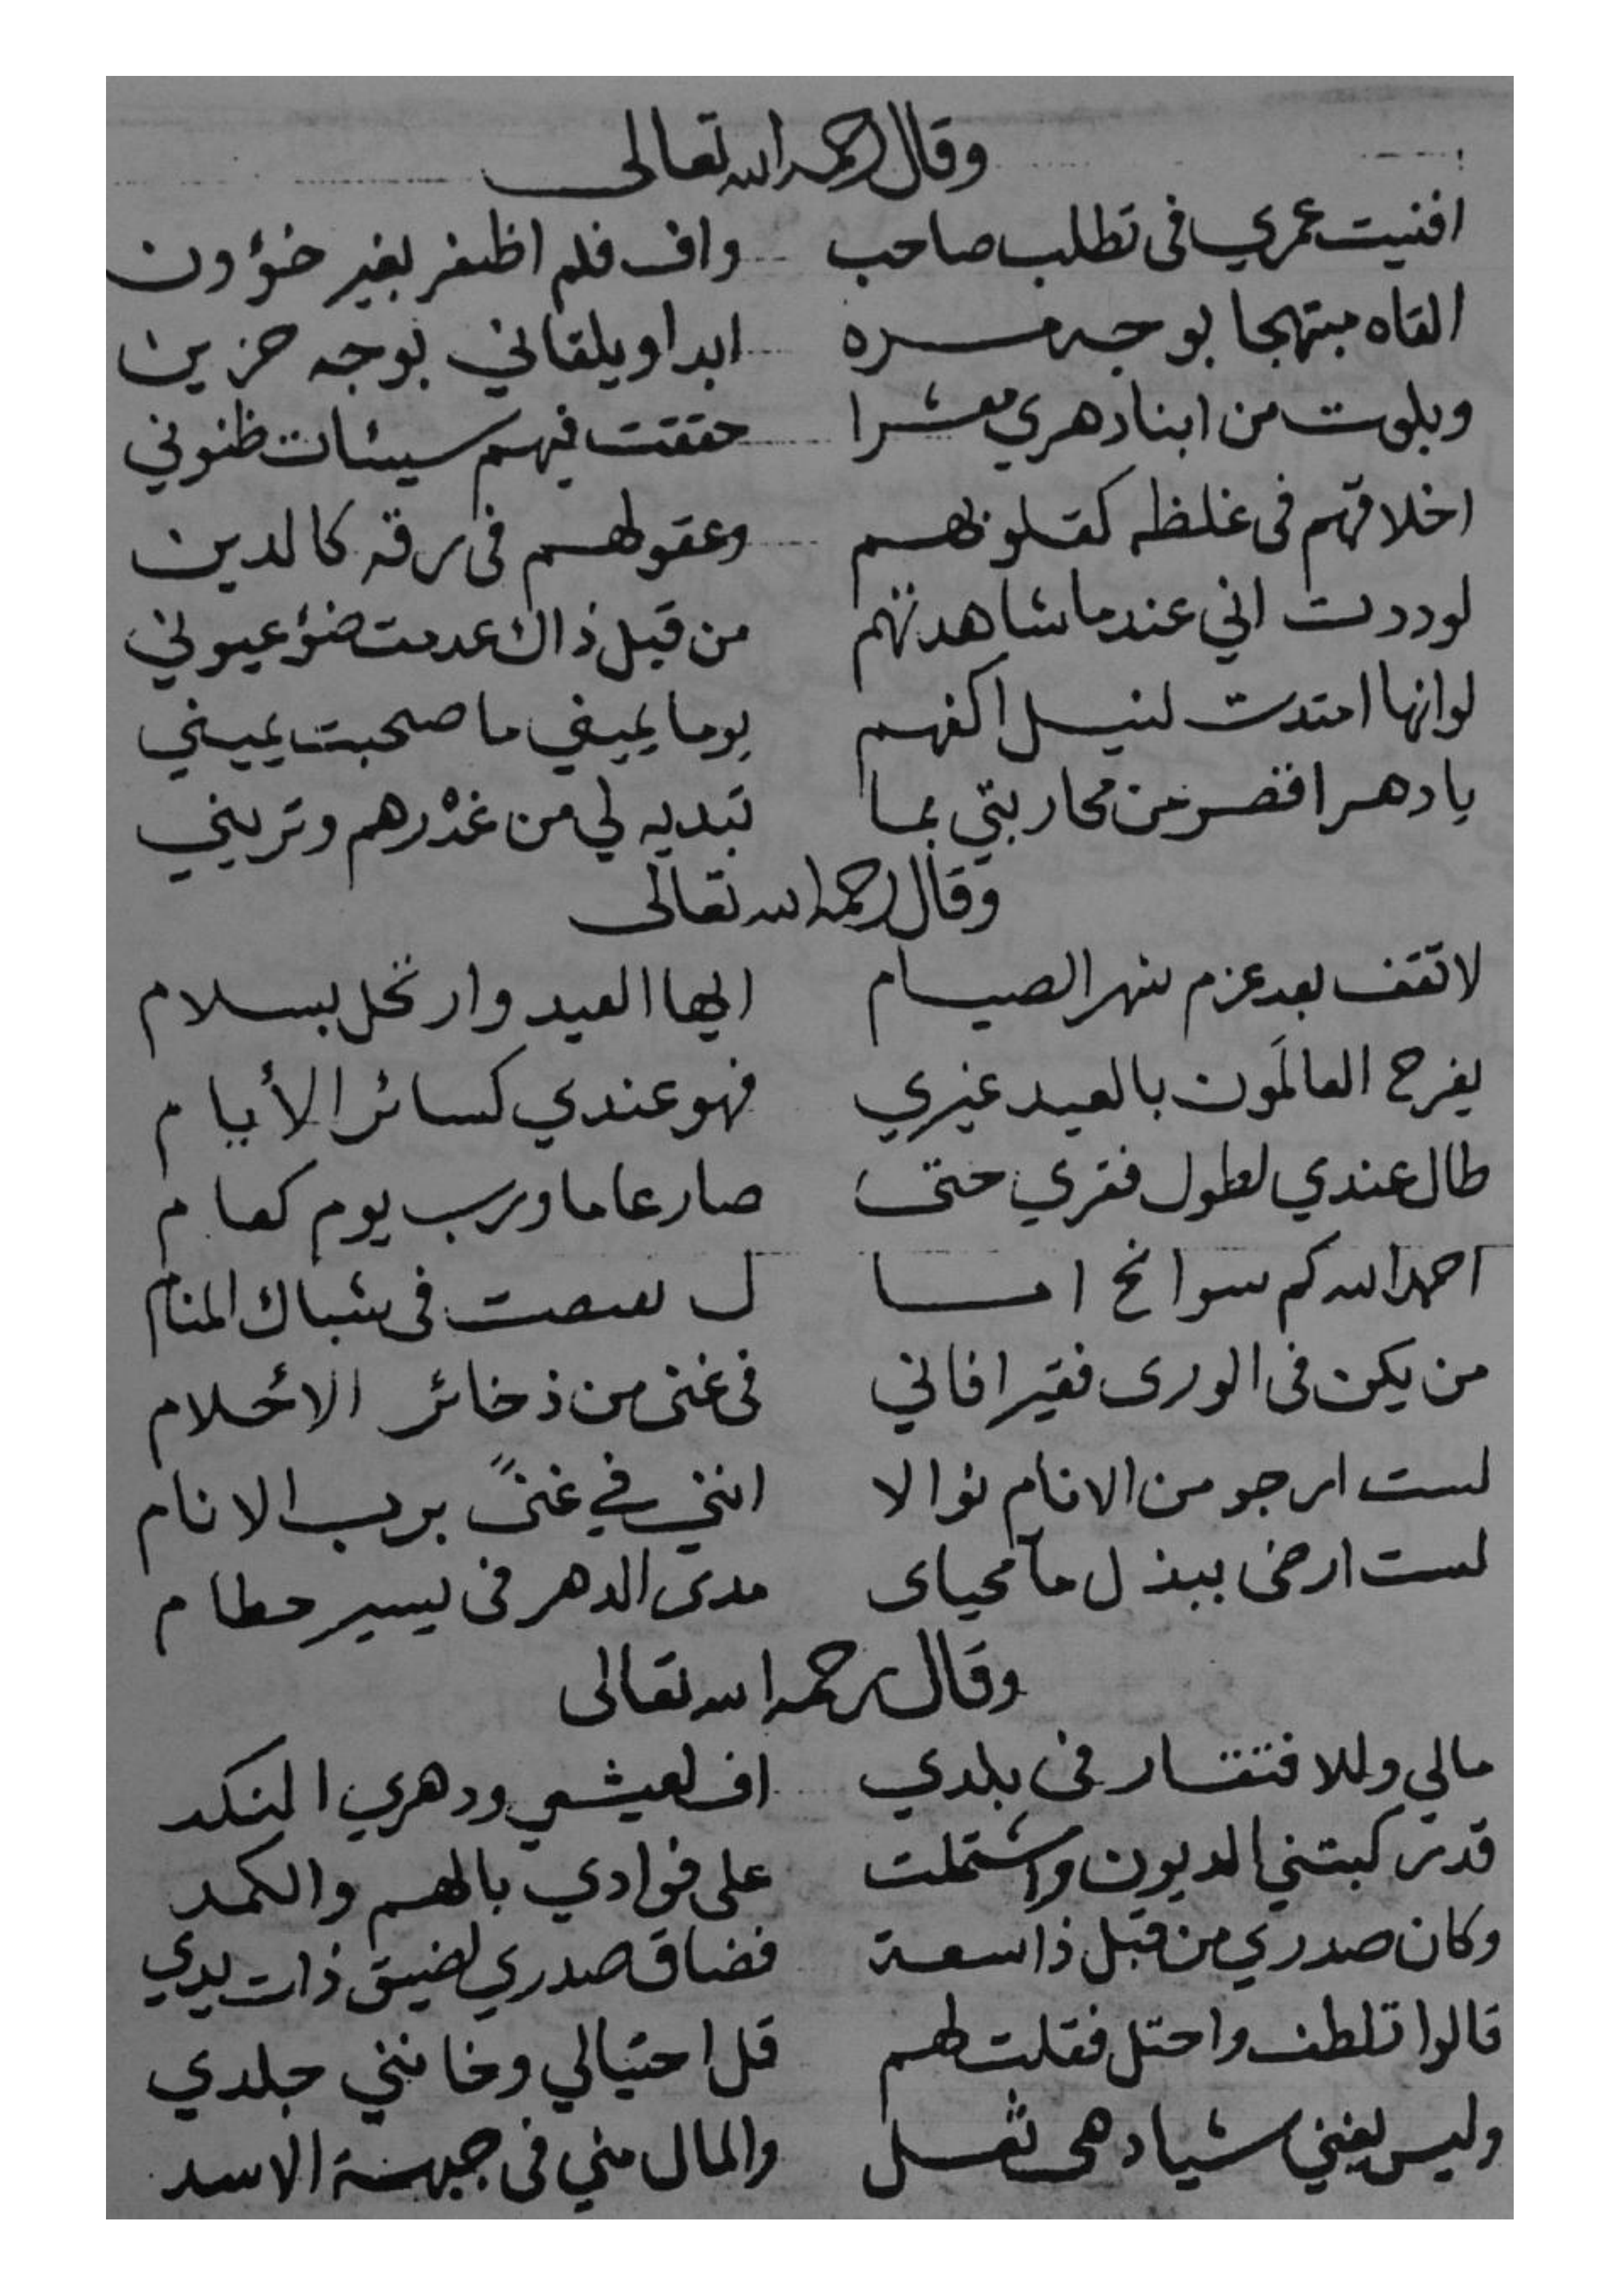 وقال رحمه الله تعالى
افنيت عمري فى تطلب صاحب واف فلم اظفر بغير خؤون
القاه مبتهجا بوجه مسره ابدا ويلقاني بوجه حزين
وبلوت من ابنا دهري معشرا حققت فيهم سيئات ظنوني
اخلاقهم فى غلظه كقلوبهم وعقولهم فى رقه كالدين
لوددت اني عندما شاهدتهم من قبل ذاك عدمت ضؤ عيوني
لو انها امتدت لنيل اكفهم يوما يميني ما صحبت يميني
يا دهر اقصر من محاربتي بما تبديه لي من غدرهم وتريني
وقال رحمه الله تعالى
لا تقف بعد عزم شهر الصيام ايها العيد وارتحل بسلام
يفرح العالمون بالعيد غيري فهو عندي كسائر الأيام
طال عندي لطول فقري حتى صار عاما ورب يوم كعام
احمد الله كم سوانح امـا ل فى شباك المنام
من يكن فى الورى فقيرا فاني فى غنى من ذخائر الاحلام
لست ارجو من الانام نوالا انني في غنىً برب الانام
لست ارضى ببذل ما محياى مدى الدهر فى يسير حطام
وقال رحمه الله تعالى
مالي وللافتقار فى بلدي اف لعيشي ودهري النكد
قد ركبتني الديون واشتملت على فوادي بالهم والكمد
وكان صدري من قبل ذا سعة فضاق صدري لضيق ذات يدي
قالوا تلطف واحتل فقلت لهم قل احتيالي وخانني جلدي
وليس يغني شيا دهى ثعل والمال مني فى جبهة الاسد